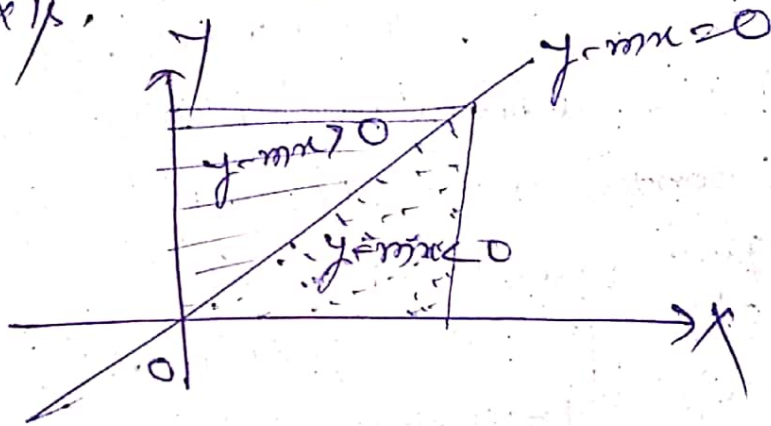 y
y-mx=0
y-mx>0
y-mx<0
X
O